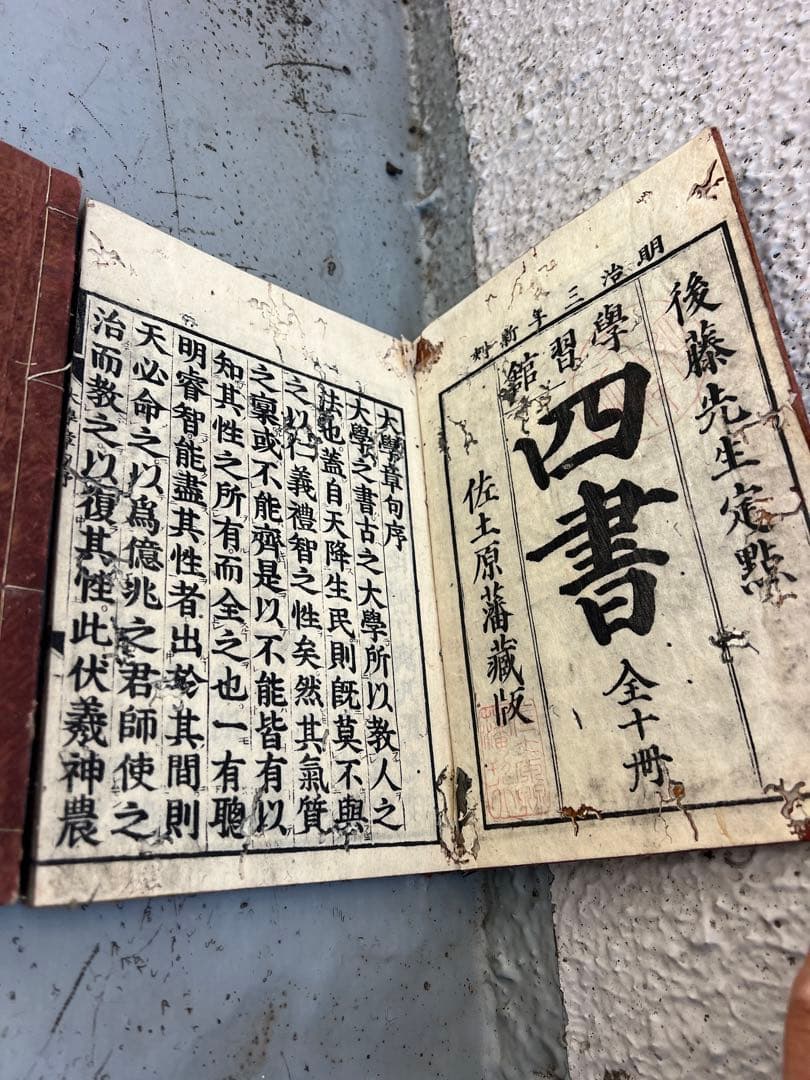 明治三年新刻
後藤先生定點
學習館
四書
全十冊
佐土原藩藏版
大學章句序
大學之書古之大學所以教人之
法也蓋自天降生民則既莫不與
之以仁義禮智之性矣然其氣質
之稟或不能齊是以不能皆有以
知其性之所有而全之也一有聰
明睿智能盡其性者出於其間則
天必命之以爲億兆之君師使之
治而教之以復其性此伏羲神農